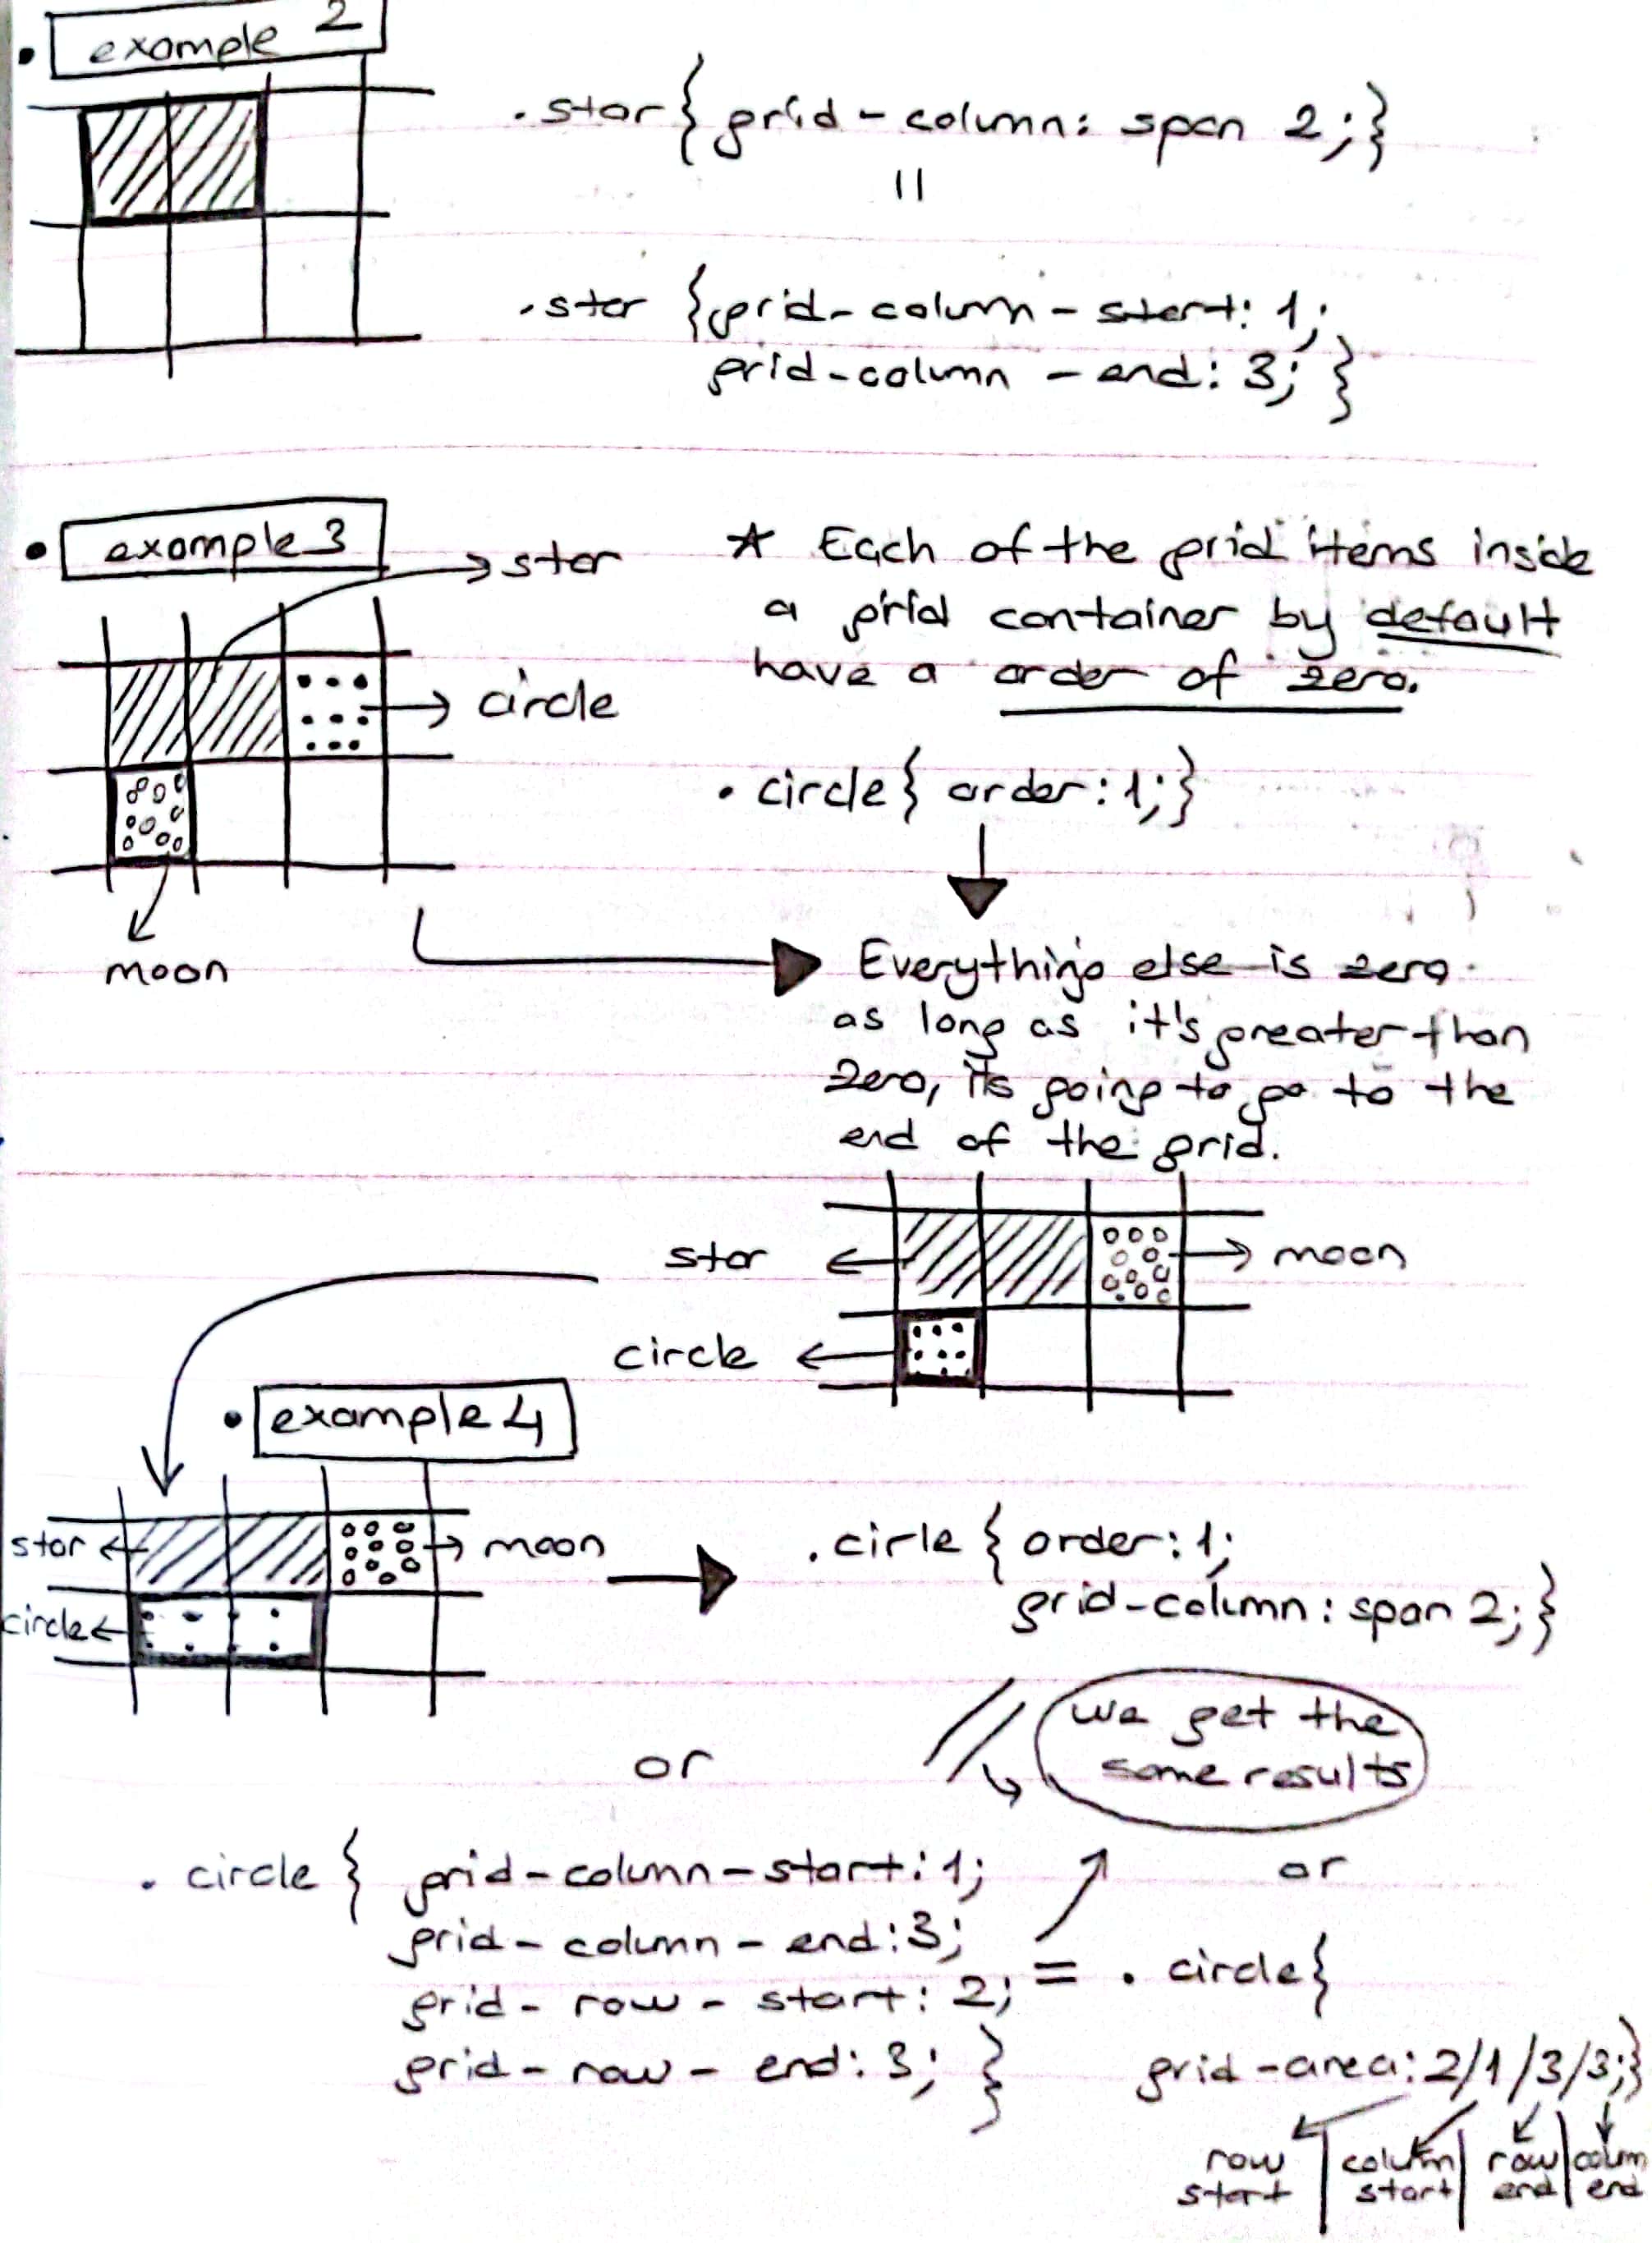 • example 2
.star{ grid-column: span 2;}
=
.star {grid-column-start: 1;
grid-column-end: 3; }
• example 3
star
circle
moon
* Each of the grid items inside
a grid container by default
have a order of zero.
.circle{ order:1;}
Everything else is zero.
as long as it's greater than
zero, it's going to go to the
end of the grid.
star
moon
circle
• example 4
star
moon
circle
.cirle { order:1;
grid-column: span 2;}
we get the
same results
or
or
.circle { grid-column-start: 1;
grid-column-end:3;
grid-row-start: 2;
grid-row-end: 3; }
= .circle{
grid-area: 2/1/3/3;}
row start | column start | row end | colum end